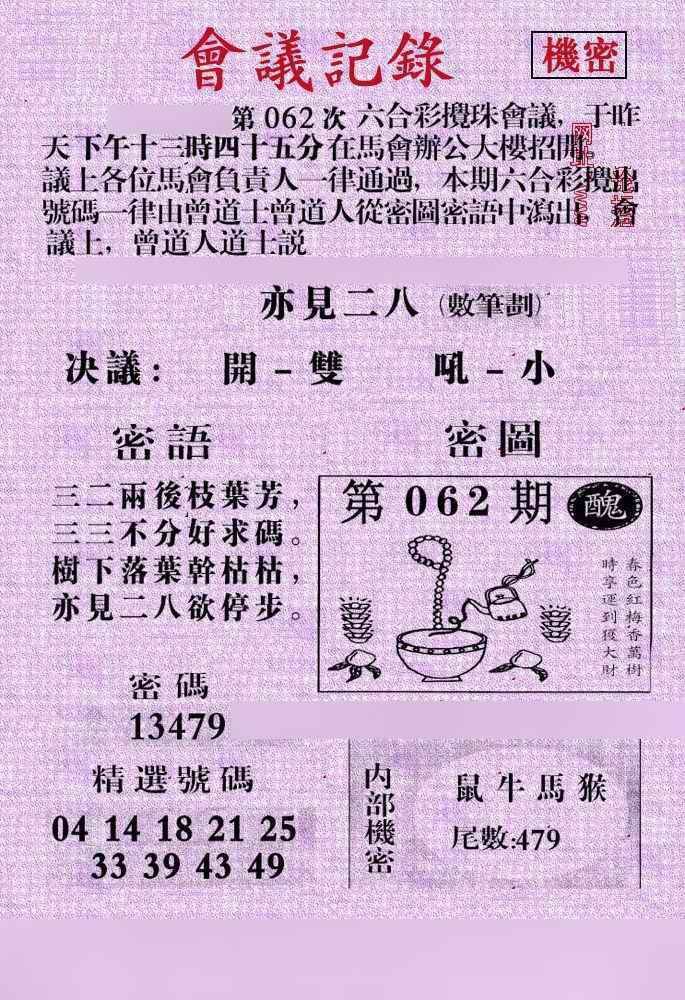 會議記錄
機密
第062次 六合彩攪珠會議，于昨
天下午十三時四十五分在馬會辦公大樓招開
議上各位馬會負責人一律通過，本期六合彩攪出
號碼一律由曾道士曾道人從密圖密語中瀉出，會
議上，曾道人道士説
亦見二八（數筆劃）
决議：開－雙 吼－小
密語
三二兩後枝葉芳，
三三不分好求碼。
樹下落葉幹枯枯，
亦見二八欲停步。
密圖
第062期 醜
春色紅梅香萬樹
時享運到獲大財
密碼
13479
精選號碼
04 14 18 21 25
33 39 43 49
内部機密
鼠牛馬猴
尾數:479